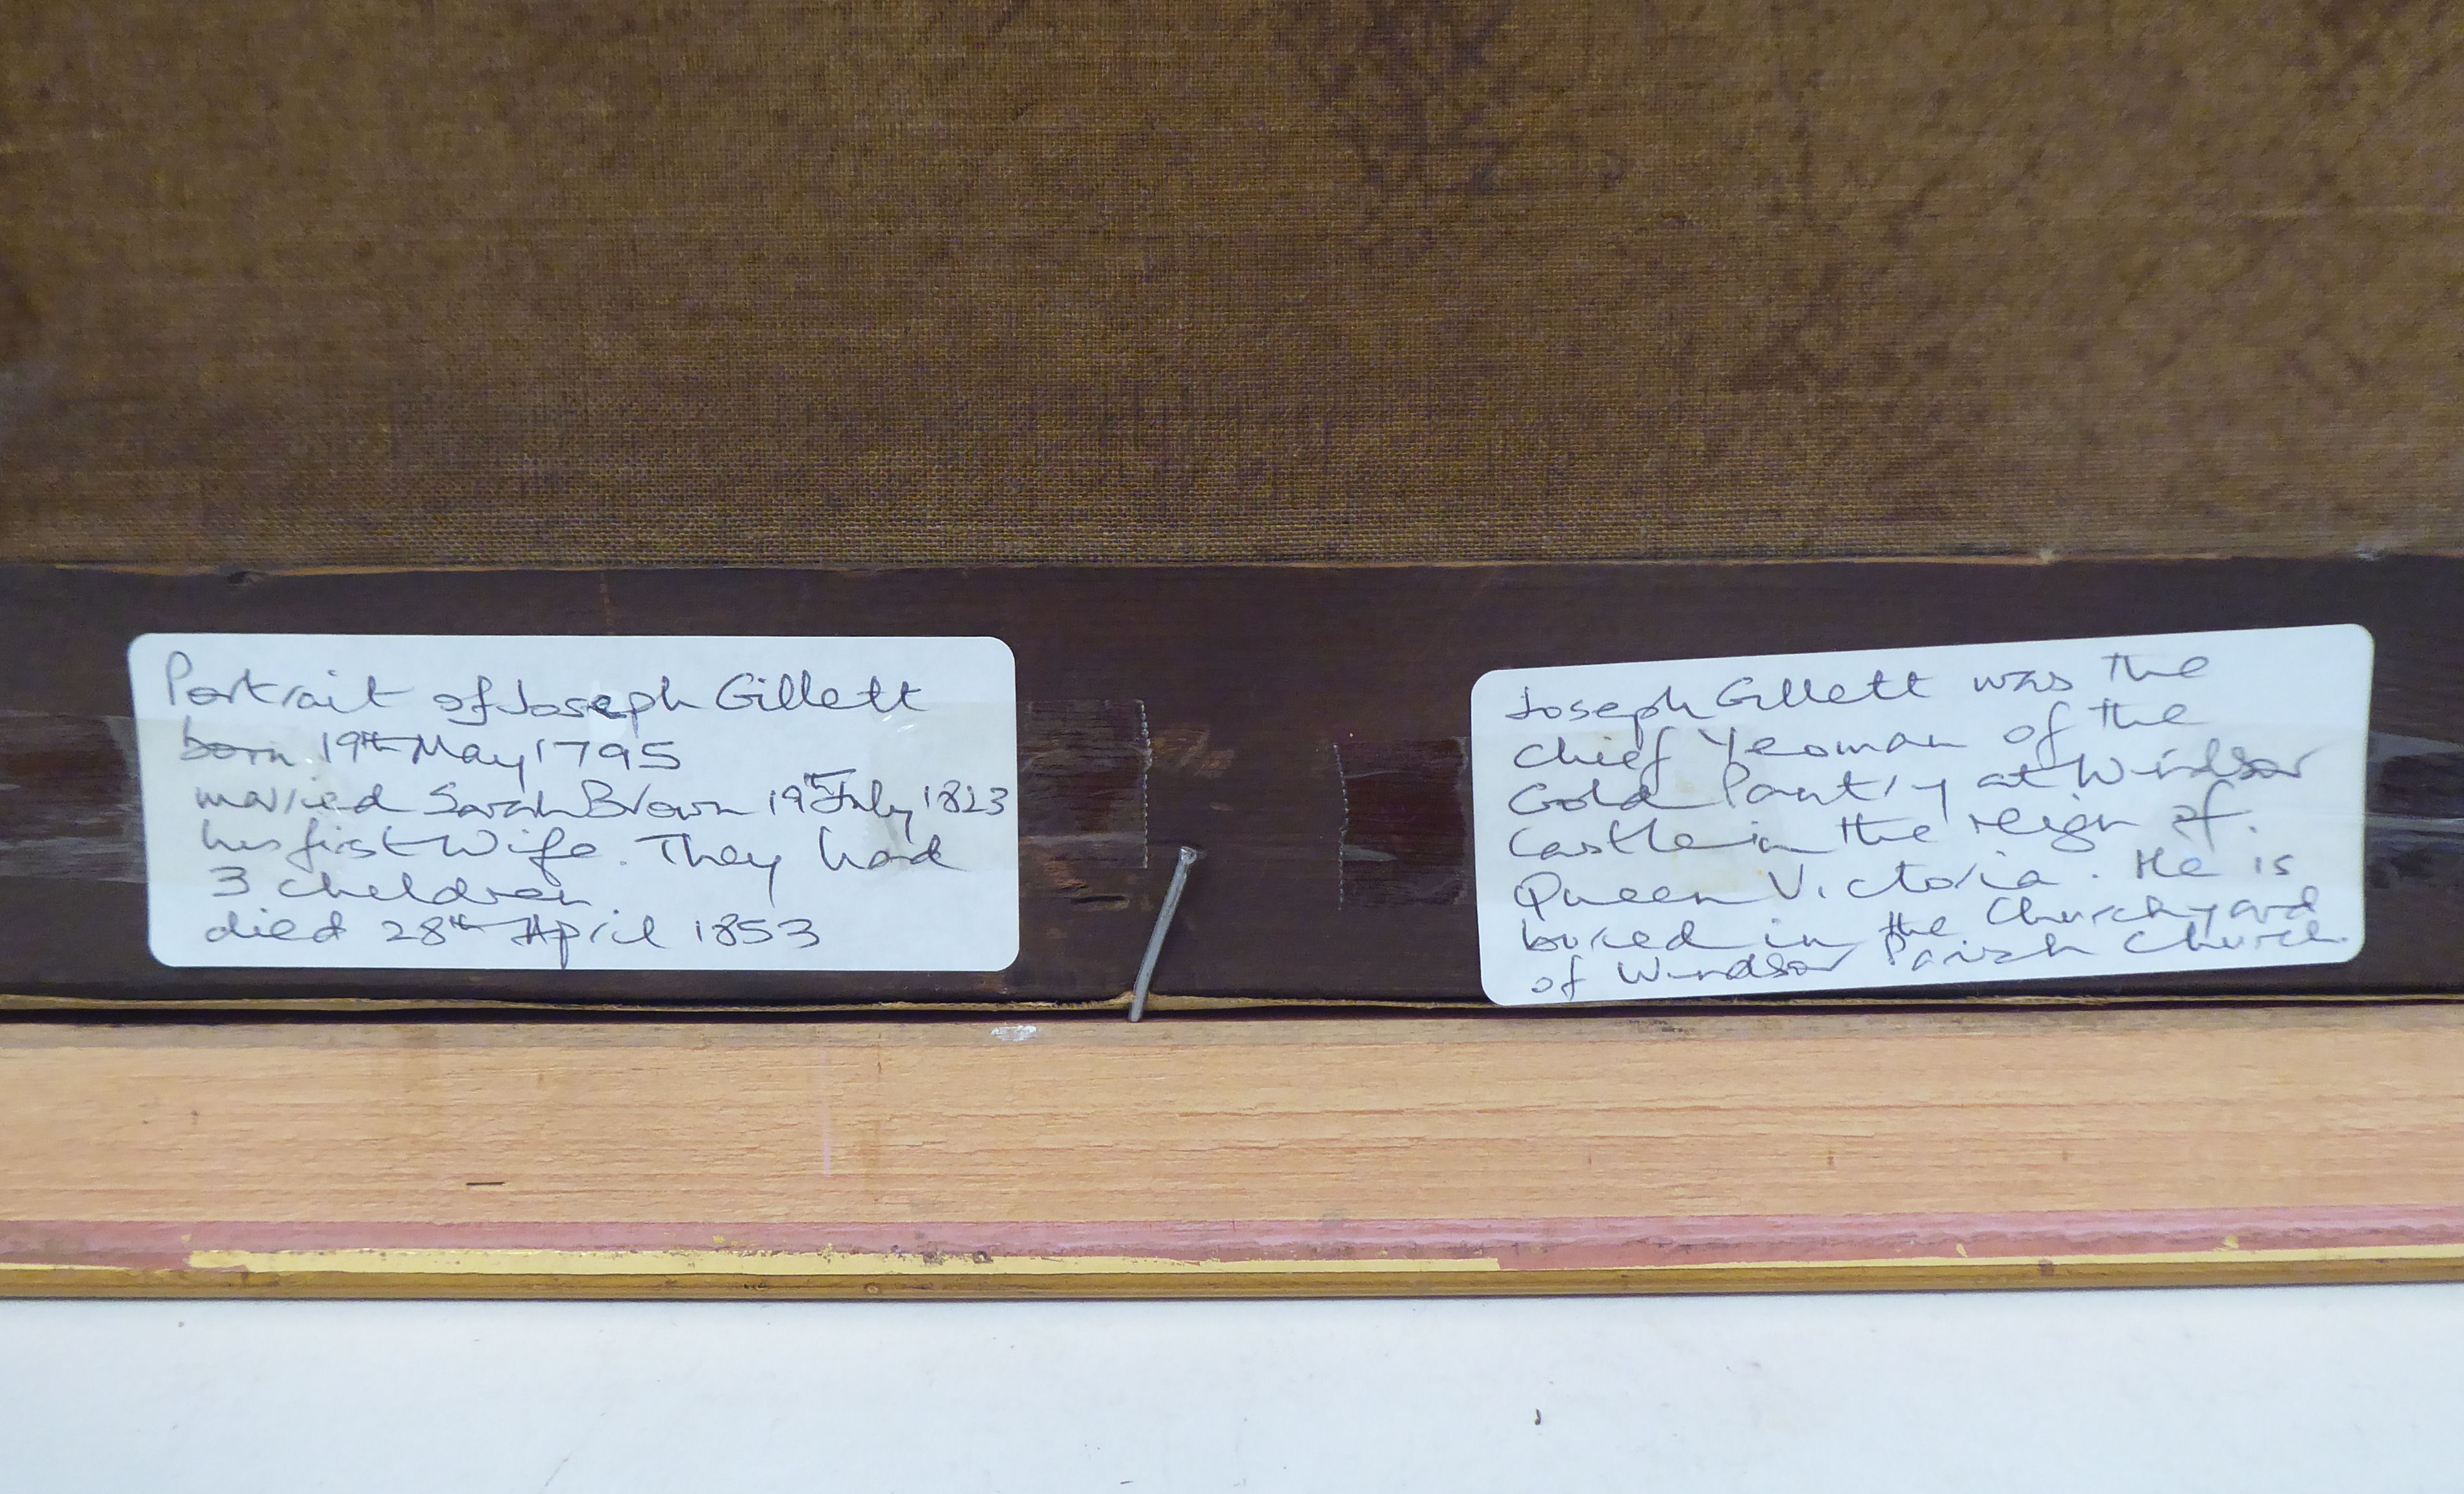 Portrait of Joseph Gillett
born 19th May 1795
married Sarah Brown 19th July 1823
his first Wife. They had
3 children
died 28th April 1853
Joseph Gillett was the
Chief Yeoman of the
Gold Pantry at Windsor
Castle in the reign of.
Queen Victoria. He is
buried in the Churchyard
of Windsor Parish Church.